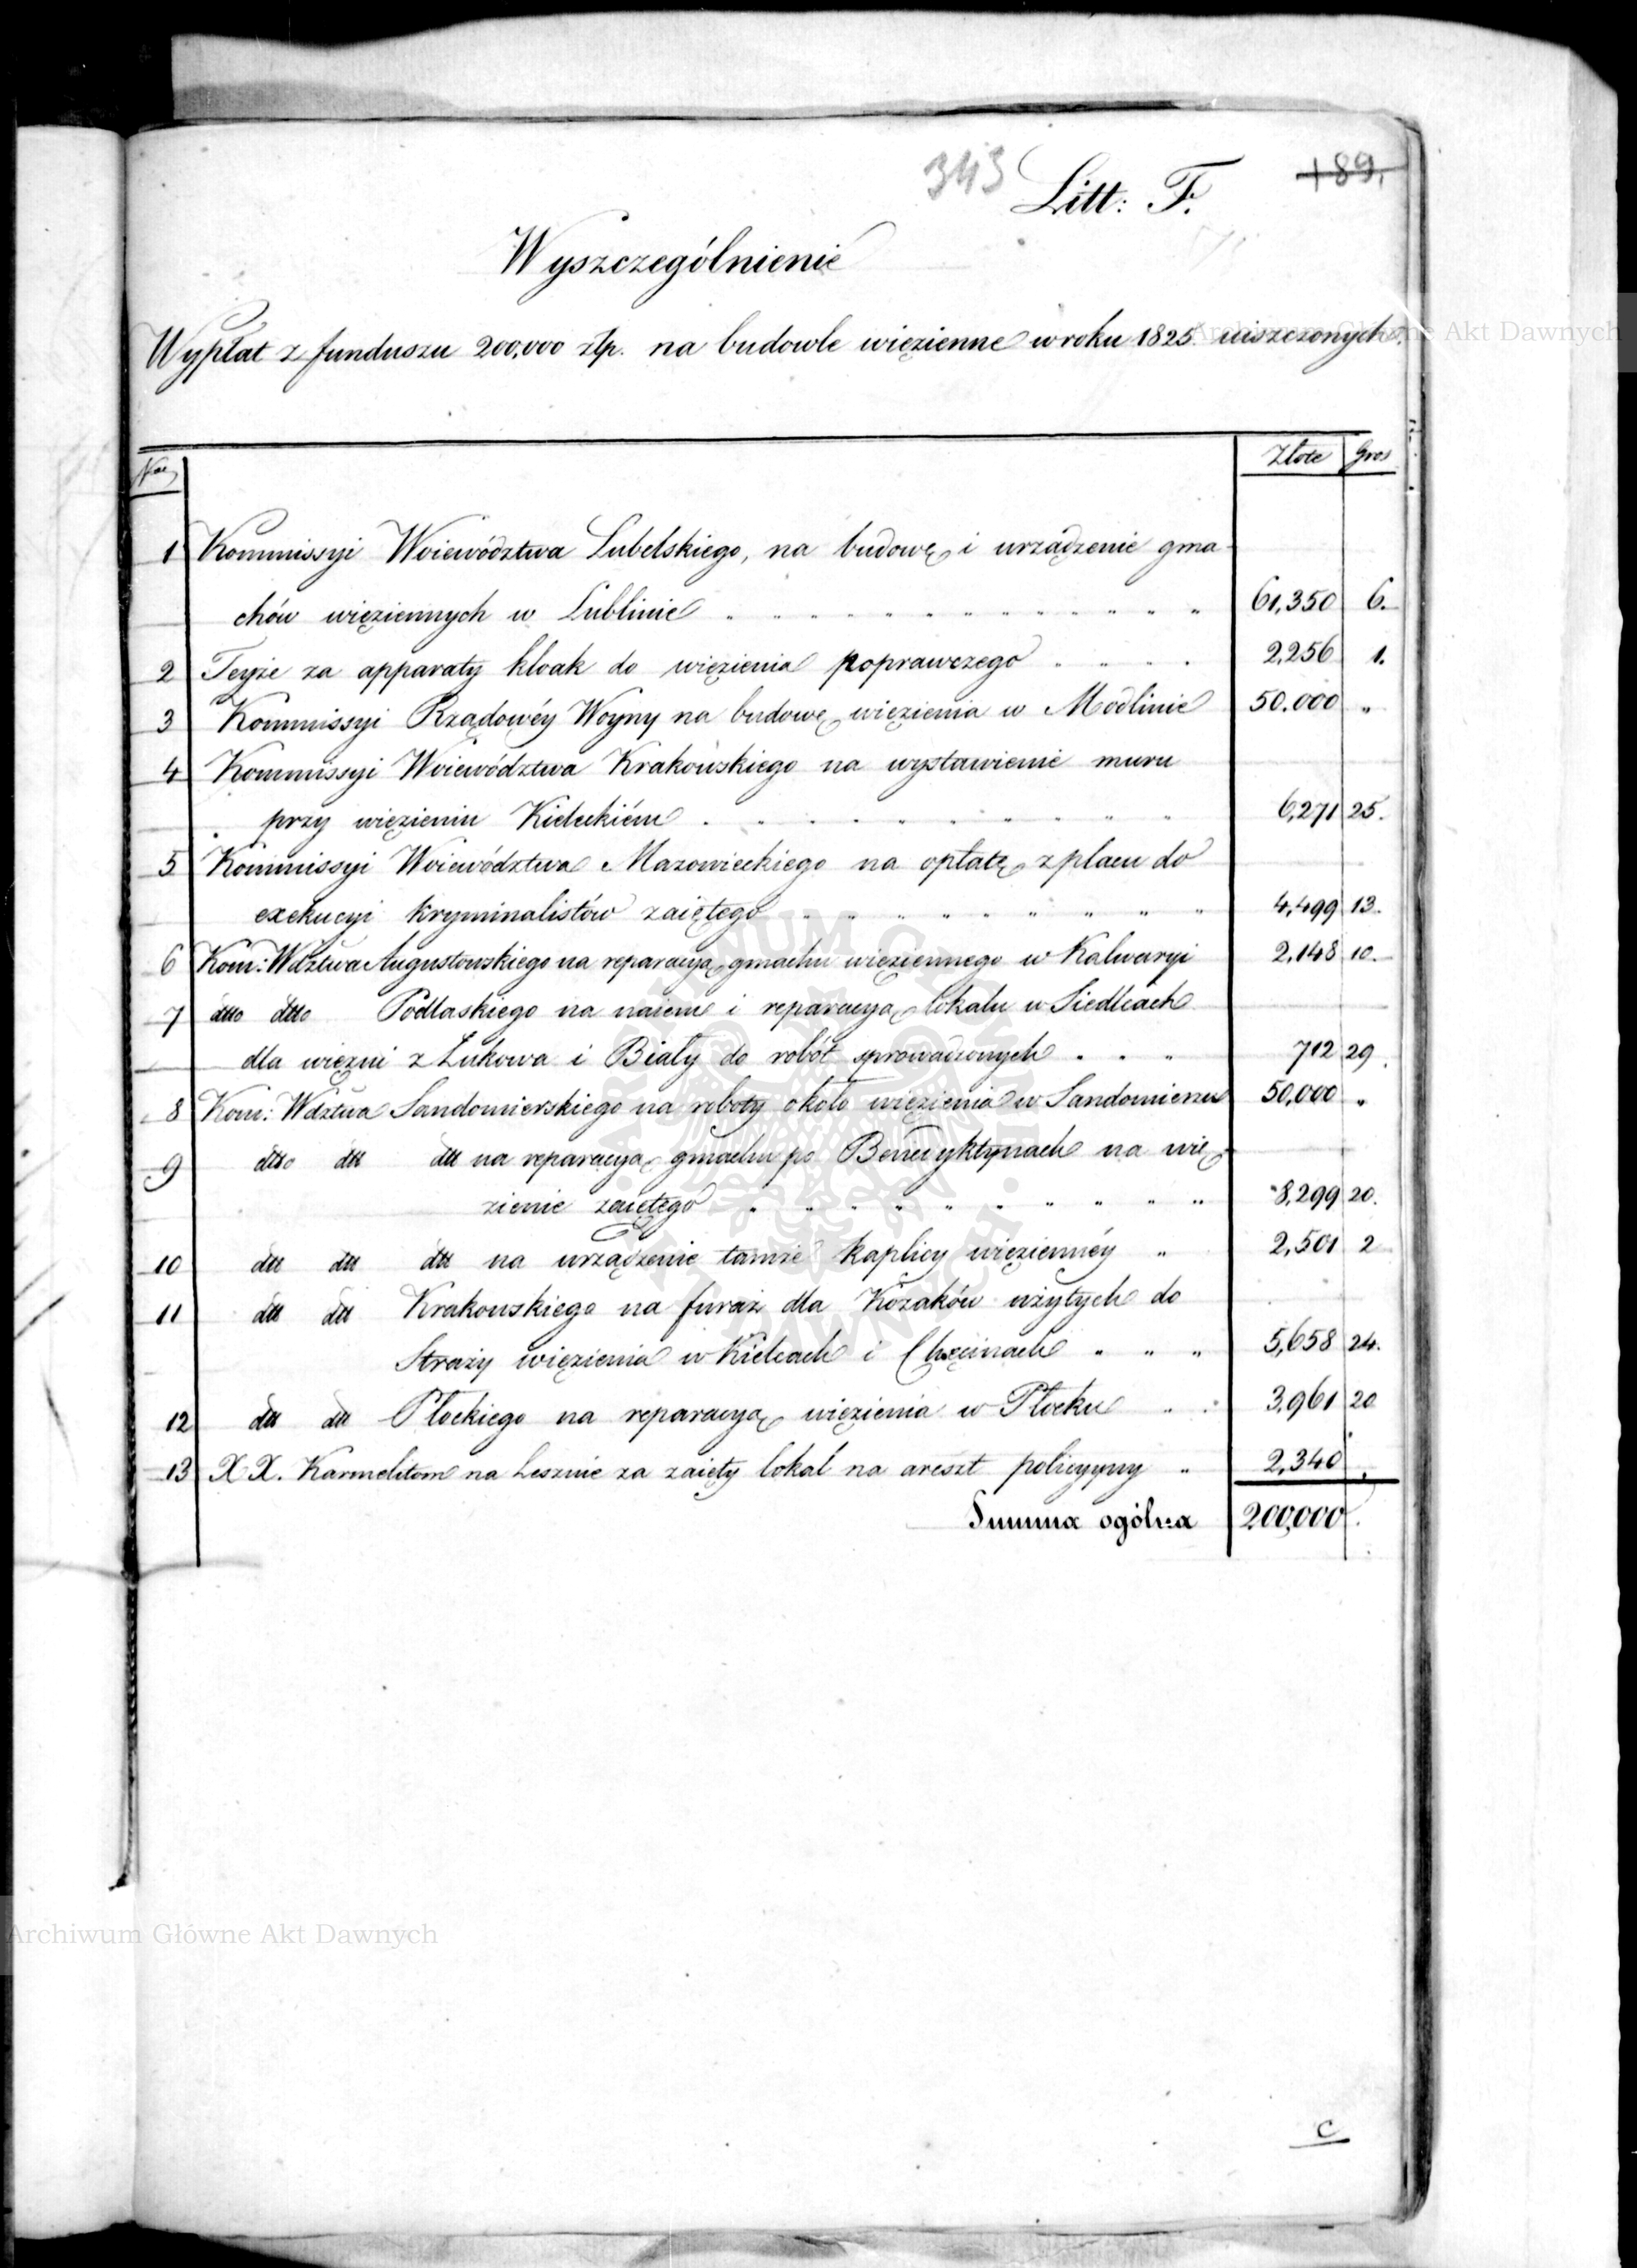 343 Litt: F. 189.
Wyszczególnienie
Wypłat z funduszu 200,000 złp. na budowle więzienne w roku 1825 uiszczonych.
Archiwum Główne Akt Dawnych
Nro Złote Gros
1 Kommissyi Woiewództwa Lubelskiego, na budowę i urządzenie gma
chów więziennych w Lublinie 61,350 6.
2 Teyże za apparaty kloak do więzienia poprawczego 2,256 1.
3 Kommissyi Rządowéy Woyny na budowę więzienia w Modlinie 50.000 „
4 Kommissyi Woiewództwa Krakowskiego na wystawienie muru
przy więzieniu Kieleckiém 6,271 25.
5 Kommissyi Woiewództwa Mazowieckiego na opłatę z placu do
exekucyi kryminalistów zaiętego 4,499 13.
6 Kom: Wdztwa Augustowskiego na reparacyą gmachu więziennego w Kalwaryi 2,148 10.
7 dtto dtto Podlaskiego na naiem i reparacyą lokalu w Siedlcach
dla więźni z Łukowa i Biały do robót sprowadzonych 712 29.
8 Kom: Wdztwa Sandomierskiego na roboty około więzienia w Sandomierzu 50,000 „
9 dtto dtt dtt na reparacyą gmachu po Benedyktynach na wię
zienie zaiętego 8,299 20.
10 dtt dtt dtt na urządzenie tamże kaplicy więziennéy „ 2,501 2
11 dtt dtt Krakowskiego na furaż dla Kozaków użytych do
Straży więzienia w Kielcach i Chęcinach „ „ „ 5,658 24.
12 dtt dtt Płockiego na reparacyą więzienia w Płocku 3,961 20
13 X X. Karmelitom na Lesznie za zaięty lokal na areszt policyyny „ 2,340
Summa ogólna 200,000
Archiwum Główne Akt Dawnych
c